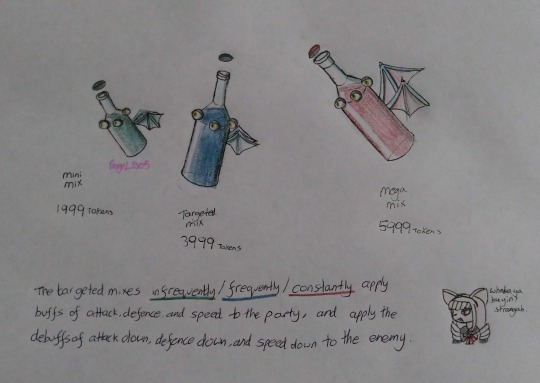 mini
mix
1999 Tokens
Targeted
mix
3999 Tokens
Mega
mix
5999 Tokens
The targeted mixes infrequently/frequently/constantly apply
buffs of attack, defence, and speed to the party, and apply the
debuffs of attack down, defence down, and speed down to the enemy.
buyin'
strangah.